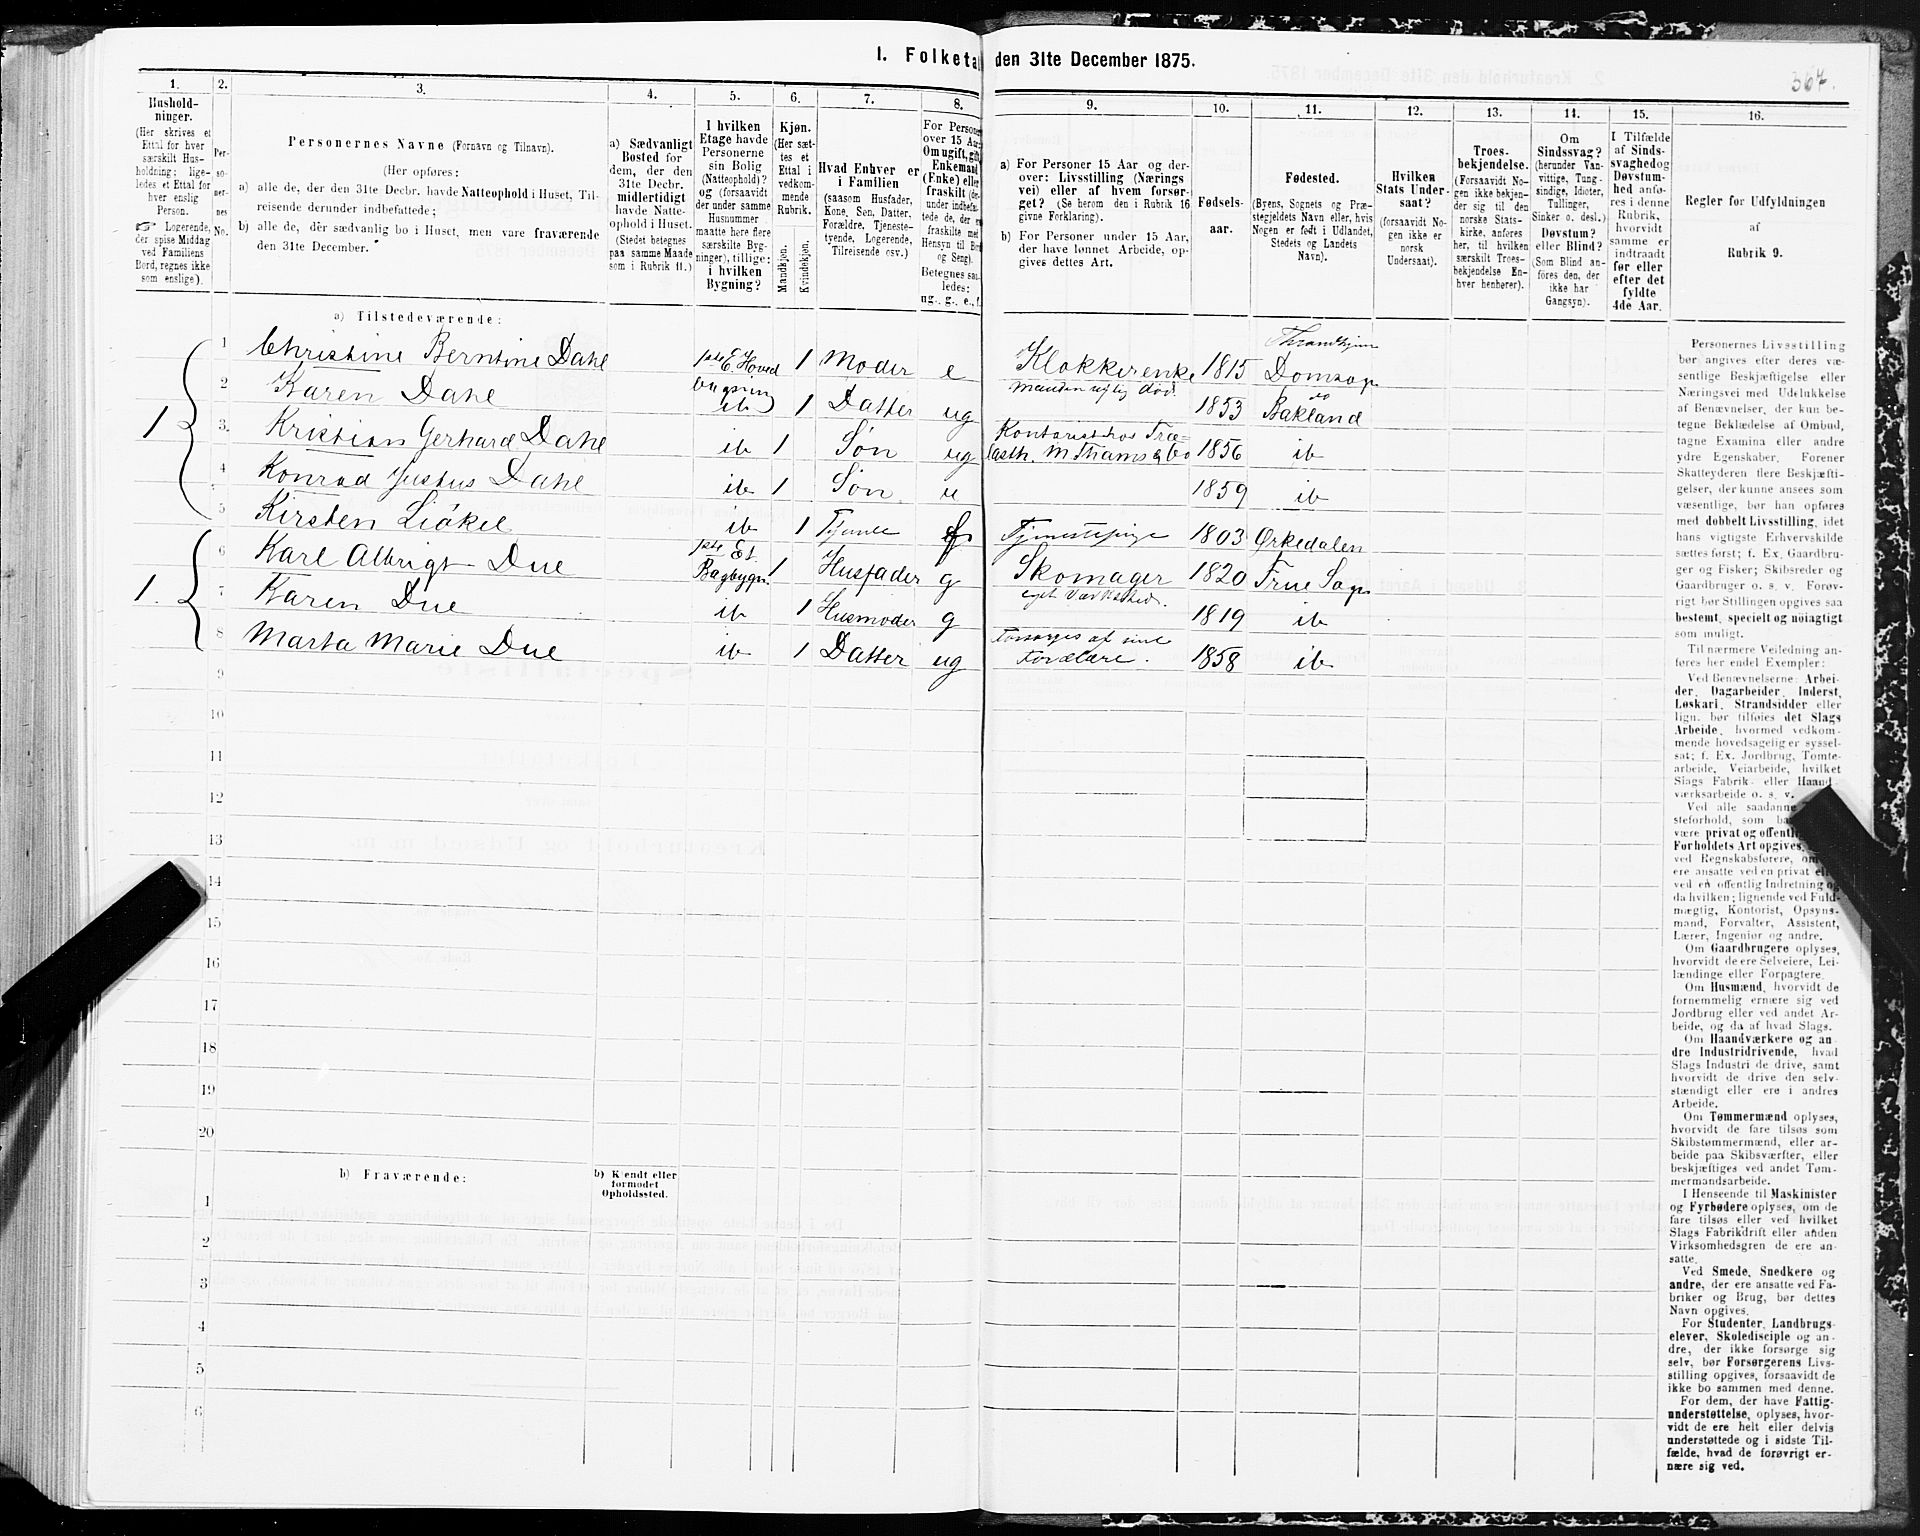 I. Folketal den 31te December 1875.
367.
1. 2. 3. 4. 5. 6. 7. 8. 9. 10. 11. 12. 13. 14. 15. 16.
Hushold-
ninger.
(Her skrives et
Ettal for hver
særskilt Hus-
holdning; lige-
ledes et Ettal for
hver enslig
Person.
Logerende,
der spise Middag
ved Familiens
Bord, regnes ikke
som enslige).
Per-
so-
ner-
nes
No.
Personernes Navne (Fornavn og Tilnavn).
(Her opføres:
a) alle de, der den 31te Decbr. havde Natteophold i Huset, Til-
reisende derunder indbefattede;
b) alle de, der sædvanlig bo i Huset, men vare fraværende
den 31te December.
a) Sædvanligt
Bosted for
dem, der den
31te Decbr.
midlertidigt
havde Natte-
ophold i Huset.
(Stedet betegnes
paa samme Maade
som i Rubrik 11.)
I hvilken
Etage havde
Personerne
sin Bolig
(Natteophold)?
og (forsaavidt
der under samme
Husnummer
maatte høre flere
særskilte Byg-
ninger), tillige:
i hvilken
Bygning?
Kjøn.
(Her sæt-
tes et
Ettal i
vedkom-
mende
Rubrik.
Mandkjøn.
Kvindekjøn.
Hvad Enhver er
i Familien
(saasom Husfader,
Kone, Søn, Datter,
Forældre, Tjeneste-
tyende, Logerende,
Tilreisende osv.)
For Personer
over 15 Aar:
Om ugift, gift,
Enkemand
(Enke) eller
fraskilt (de-
under indbefat-
tede de, der er
fraskilte med
Hensyn til Bord
og Seng).
Betegnes saa-
ledes:
ug., g., e., f.
a) For Personer 15 Aar og der-
over: Livsstilling (Nærings-
vei) eller af hvem forsør-
get? (Se herom den i Rubrik 16
givne Forklaring).
b) For Personer under 15 Aar,
der have lønnet Arbeide, op-
gives dettes Art.
Fødsels-
aar.
Fødested.
(Byens, Sognets og Præ-
stegjeldets Navn eller, hvis
Nogen er født i Udlandet,
Stedets og Landets
Navn).
Hvilken
Stats Under-
saat?
(forsaavidt No-
gen ikke er
norsk
Undersaat).
Troes-
bekjendelse.
(Forsaavidt No-
gen ikke bekjen-
der sig til den
norske Stats-
kirke, anføres
her, til hvilken
særskilt Troes-
bekjendelse En-
hver henhører).
Om
Sindssvag?
(herunder Van-
vittige, Tung-
sindige, Idioter,
Tullinger,
Sinker o. desl.)
Døvstum?
eller Blind?
(Som Blind an-
føres den, der
ikke har
Gangsyn).
I Tilfælde
af Sinds-
svaghed og
Døvstum-
hed anfø-
res i denne
Rubrik,
hvorvidt
samme er
indtraadt
før eller
efter det
fyldte
4de Aar.
Regler for Udfyldningen
af
Rubrik 9.
a) Tilstedeværende:
1 Christine Berntine Dahl 1ste E. Hovedbygning 1 Moder e Klokkerenke manden nylig død. 1815 Throndhjem Domsogn
2 Karen Dahl ib 1 Datter ug 1853 do Bakland
1
3. Kristian Gerhard Dahl ib 1 Søn ug Kontorist hos Træ= lasth. M. Thams & Co 1856 ib
4 Konrad Justus Dahl ib 1 Søn u 1859 ib
5 Kirsten ib 1 Tjenestepige 1803 Ørkedalen
6 Karl Albrigt Due 1ste Et. Bagbygn. 1 Husfader g Skomager eget Værksted. 1820 Frue Sogn
1.
7 Karen Due ib 1 Husmoder g 1819 ib
8 Marta Marie Due ib 1 Datter ug Forsørges af sine Forældre. 1858 ib
9
10
11
12
13
14
15
16
17
18
19
20
b) Fraværende:
b) Kjendt eller
formodet
Opholdssted.
1
2
3
4
5
6
Personernes Livsstilling
bør angives efter deres væ-
sentlige Beskjæftigelse eller
Næringsvei med Udelukkelse
af Benævnelser, der kun be-
tegne Beklædelse af Ombud,
tagne Examina eller andre
ydre Egenskaber. Forener
Skatteyderen flere Beskjæfti-
gelser, der kunne ansees som
væsentlige, bør han opføres
med dobbelt Livsstilling, idet
hans vigtigste Erhvervskilde
sættes først; f. Ex. Gaardbru-
ger og Fisker; Skibsreder og
Gaardbruger o. s. v. Forøv-
rigt bør Stillingen opgives saa
bestemt, specielt og nøiagtigt
som muligt.
Til nærmere Veiledning an-
føres her endel Exempler:
Ved Benævnelserne: Arbei-
der, Dagarbeider, Inderst,
Løskari, Strandsidder eller
lign. bør tilføies det Slags
Arbeide, hvormed vedkom-
mende hovedsagelig er syssel-
sat; f. Ex. Jordbrug, Tomte-
arbeide, Veiarbeide, hvilket
Slags Fabrik- eller Haand-
værksarbeide o. s. v.
Ved alle saadanne
steforhold, som
være privat og offentlig
Forholdets Art opgives,
ved Regnskabsførere, om
ere ansatte ved en privat eller
ved en offentlig Indretning og
da hvilken; lignende ved Fuld-
mægtig, Kontorist, Opsyns-
mand, Forvalter, Assistent,
Lærer, Ingeniør og andre.
Om Gaardbrugere oplyses,
hvorvidt de ere Selveiere, Lei-
lændinge eller Forpagtere.
Om Husmænd, hvorvidt de
fornemmelig ernære sig ved
Jordbrug eller ved andet Ar-
beide, og da af hvad Slags.
Om Haandværkere og an-
dre Industridrivende, hvad
Slags Industri de drive, samt
hvorvidt de drive den selv-
stændigt eller ere i andres
Arbeide.
Om Tømmermænd oplyses,
hvorvidt de fare tilsøs som
Skibstømmermænd, eller ar-
beide paa Skibsværfter, eller
beskjæftiges ved andet Tøm-
mermandsarbeide.
I Henseende til Maskinister
og Fyrbødere oplyses, om de
fare tilsøs eller ved hvilket
Slags Fabrikdrift eller anden
Virksomhedsgren de ere an-
satte.
Ved Smede, Snedkere og
andre, der ere ansatte ved Fa-
briker og Brug, bør dettes
Navn opgives.
For Studenter, Landbrugs-
elever, Skoledisciple og an-
dre, der ikke forsørge sig
selv, bør Forsørgerens Livs-
stilling opgives, forsaavidt de
ikke bo sammen med denne.
For dem, der have Fattig-
understøttelse, oplyses, hvor-
vidt de ere helt eller delvis
understøttede og i sidste Til-
fælde, hvad de forøvrigt er-
nære sig ved.